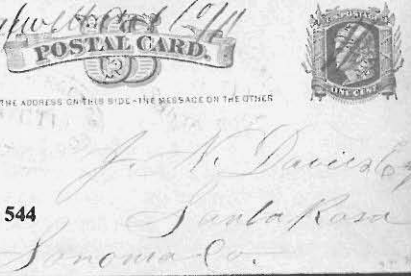 POSTAL CARD.
U.S. POSTAGE
ONE CENT
THE ADDRESS ON THIS SIDE - THE MESSAGE ON THE OTHER
J. N. Davies Esq
544
Santa Rosa
Sonoma Co.